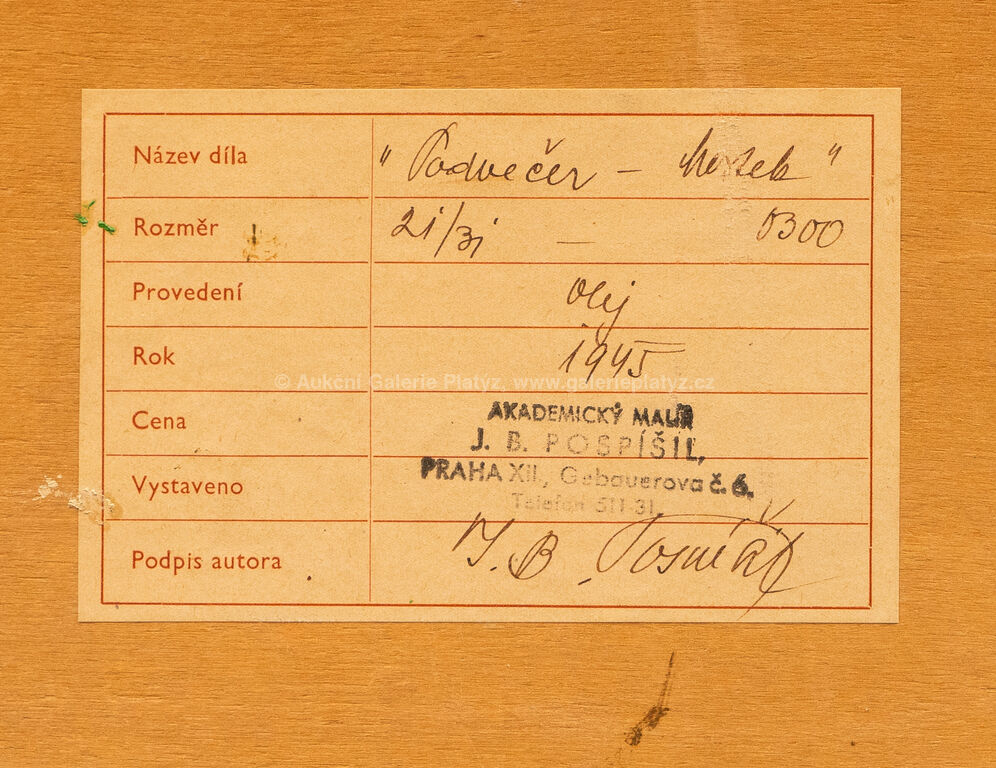 Název díla "Podvečer – "
Rozměr 21/31 – 0300
Provedení olej
Rok 1945
© Aukcní Galerie Platýz, www.galerieplatyz.cz
Cena
AKADEMICKÝ MALÍŘ
J. B. POSPÍŠIL,
PRAHA XII., Gebauerova č. 6.
Vystaveno
Telefon 511-31.
Podpis autora J. B. Pospíšil